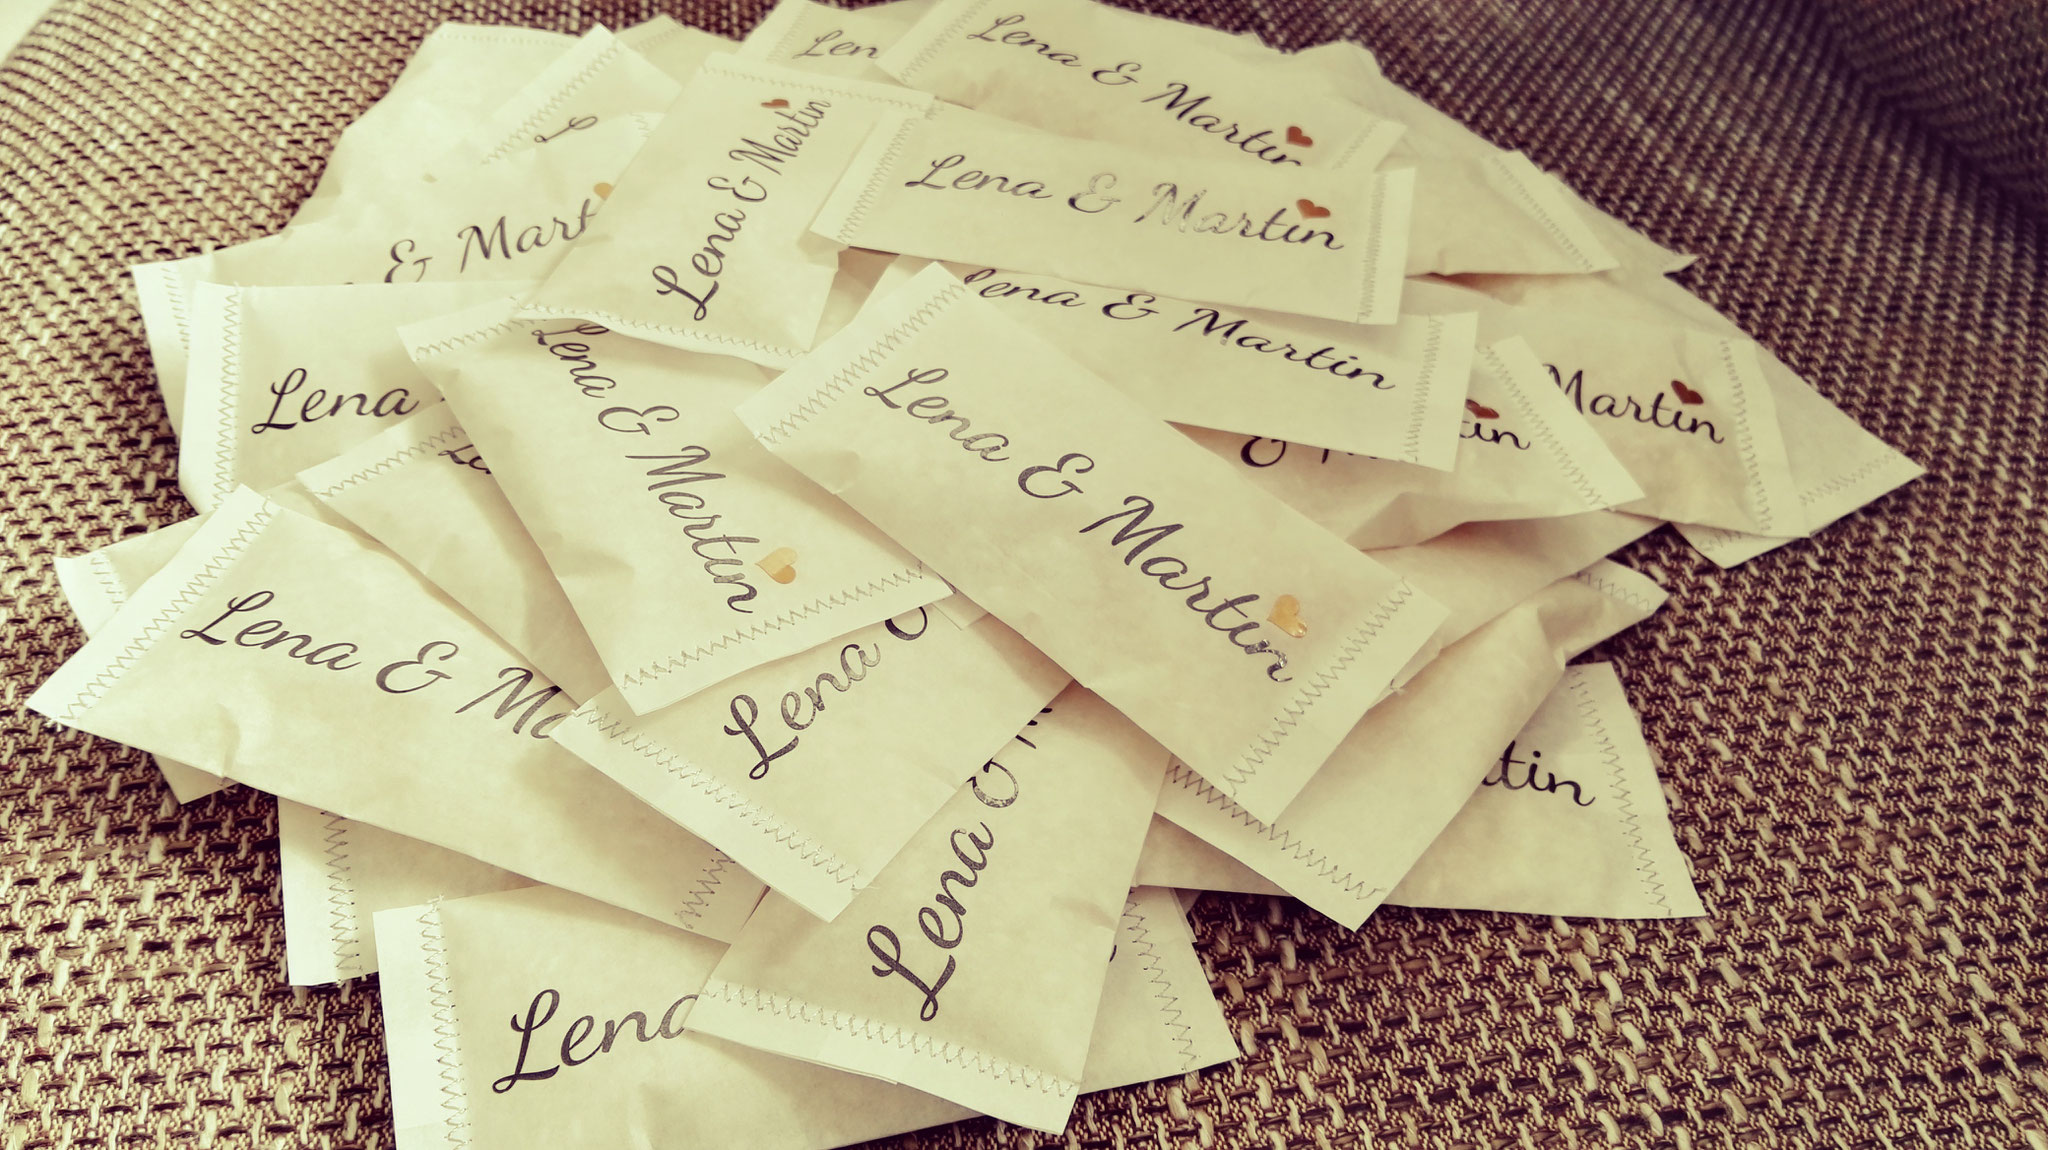 Len
Lena & Martin
L
Lena & Martin
Lena & Martin
& Mart
Lena & Martin
Lena
Lena & Martin
Lena & Martin
Martin
tin
Lena & Ma
Lena
Lena &
tin
Lena